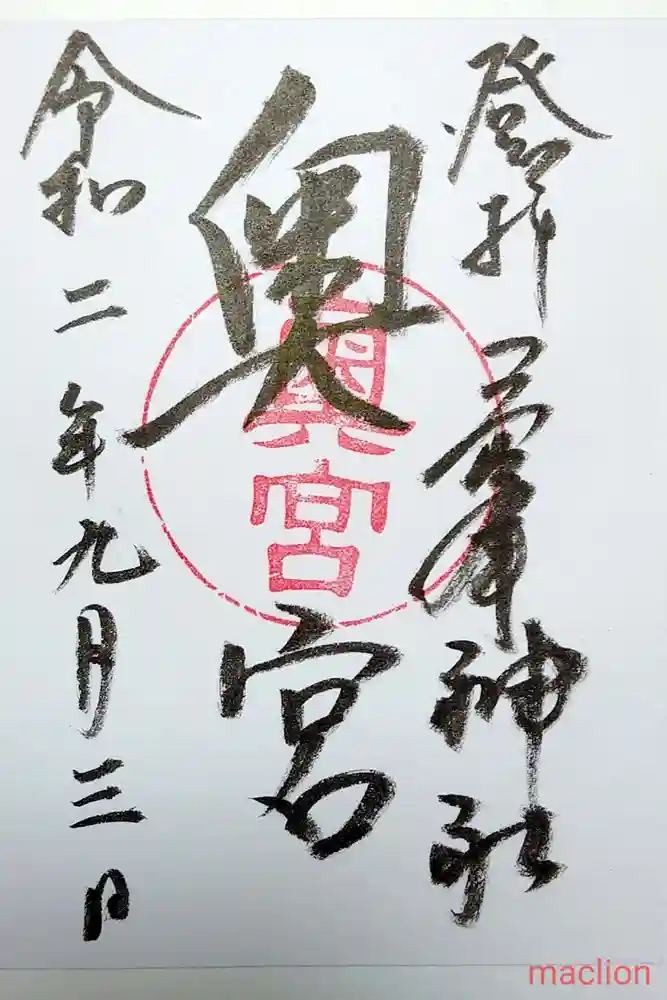 登拝 三峯神社
奥宮
奥宮
令和二年九月三日
maclion